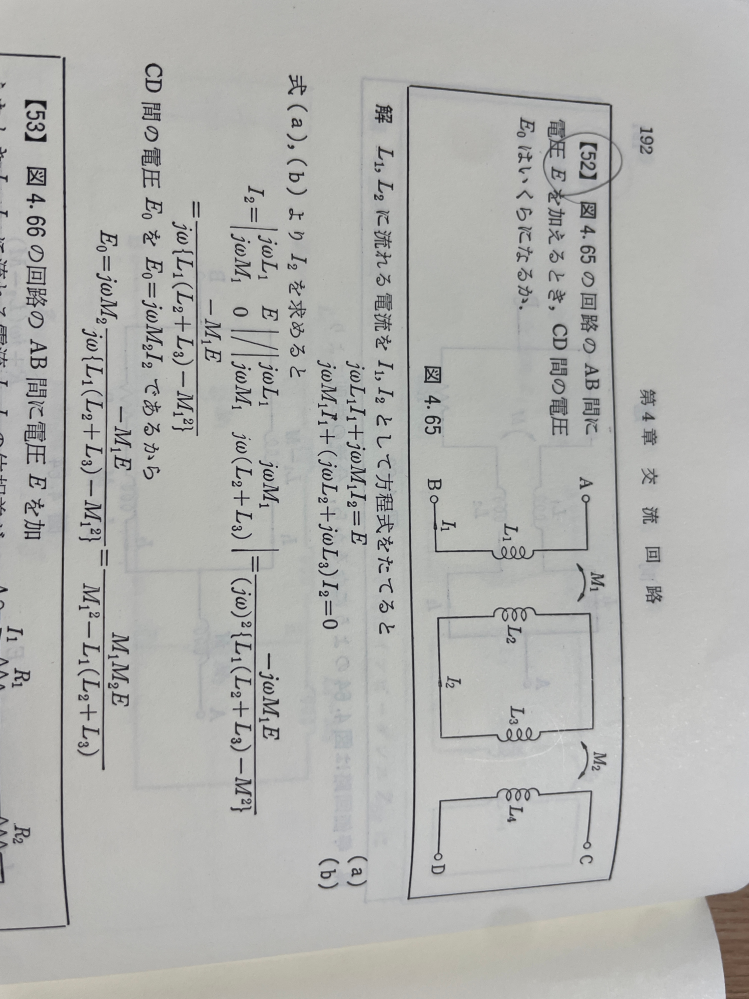 192　第4章 交流回路
【52】 図4.65の回路のAB間に
電圧Eを加えるとき，CD間の電圧
E₀はいくらになるか．
A
B
I₁
L₁
M₁
L₂
I₂
L₃
M₂
L₄
C
D
図 4.65
解　L₁, L₂に流れる電流をI₁, I₂として方程式をたてると
jωL₁I₁+jωM₁I₂=E　(a)
jωM₁I₁+(jωL₂+jωL₃)I₂=0　(b)
式(a), (b)よりI₂を求めると
I₂=|jωL₁ E; jωM₁ 0|/|jωL₁ jωM₁; jωM₁ jω(L₂+L₃)|=-jωM₁E/(jω)²{L₁(L₂+L₃)-M²}
=-M₁E/jω{L₁(L₂+L₃)-M₁²}
CD間の電圧E₀をE₀=jωM₂I₂であるから
E₀=jωM₂ -M₁E/jω{L₁(L₂+L₃)-M₁²}=M₁M₂E/M₁²-L₁(L₂+L₃)
【53】 図4.66の回路のAB間に電圧Eを加
I₁
R₁
R₂